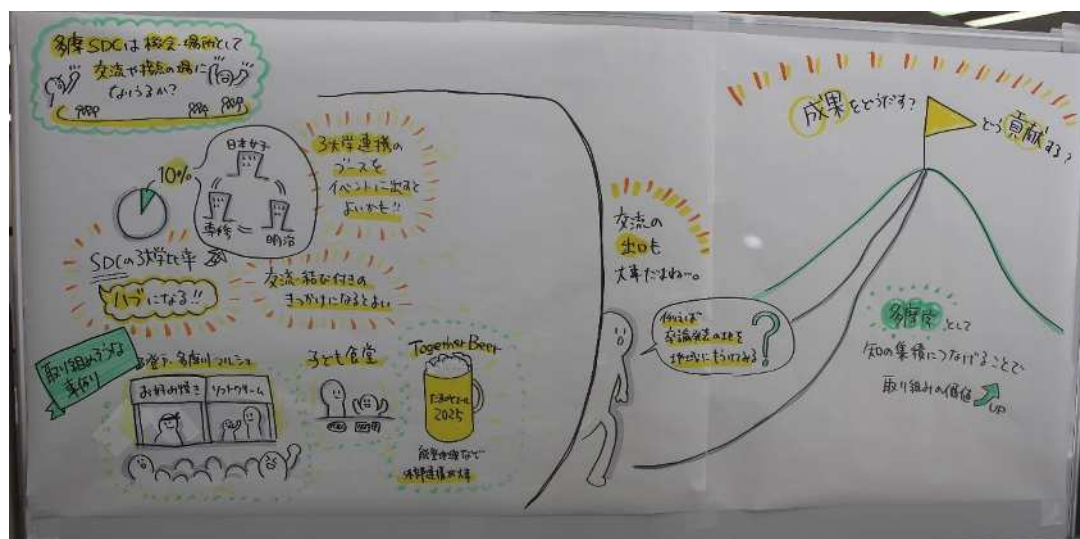 多摩SDCは機会・場所として
交流や接点の場に
なりうるか?
10%
日本女子
専修
明治
3大学連携の
ブースを
イベントに出すと
よいかも!!
SDCの3大学比率
ハブになる!!
交流・結び付きの
きっかけになるとよい
取り組めそうな
事例
登戸・多摩川マルシェ
お好み焼き
ソフトクリーム
子ども食堂
Together Beer
2025
成果をどうだす?
どう貢献する?
交流の
出口も
大事だよね…。
例えば
卒論発表の場を
地域にもうけてみる
?
多摩学として
知の集積につなげることで
取り組みの価値
UP